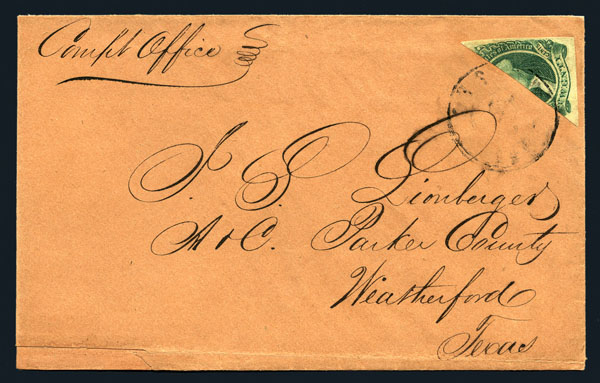 Compt Office
of America
J. S. Lionberger
A & C. Parker County
Weatherford
Texas